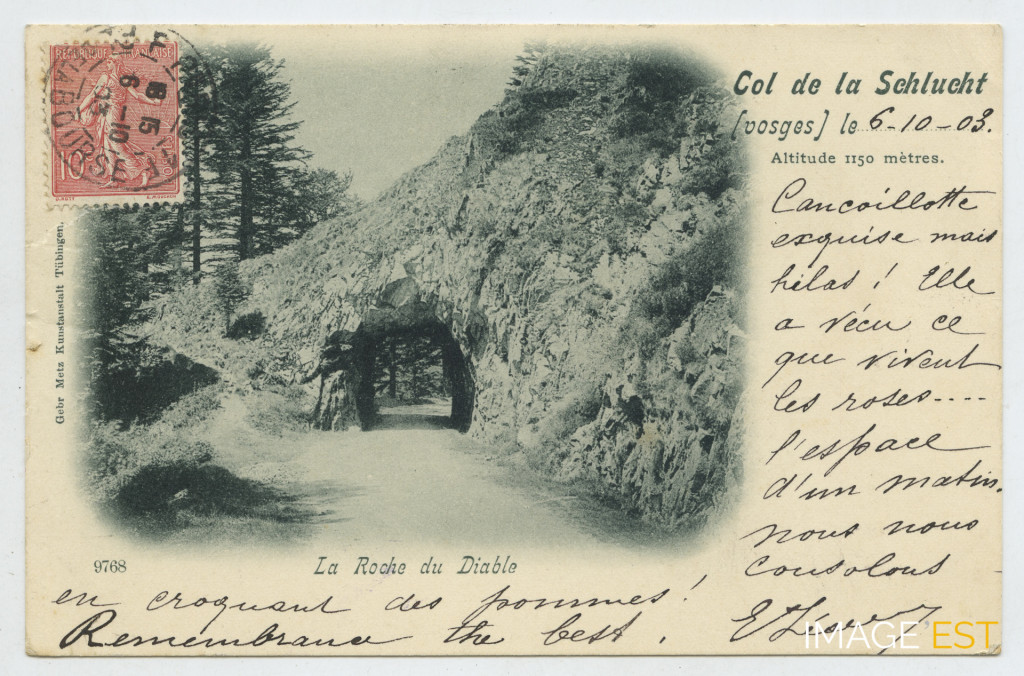 REPUBLIQUE FRANÇAISE
10
6-10
LA BOURSE
Col de la Schlucht
[vosges] le 6-10-03.
Altitude 1150 mètres.
Cancoillotte
exquise mais
hélas! Elle
a vécu ce
que vivent
les roses....
l'espace
d'un matin.
nous nous
consolons
en croquant des pommes!
Remembrance the best.
Gebr Metz Kunstanstalt Tübingen.
9768
La Roche du Diable
IMAGE EST